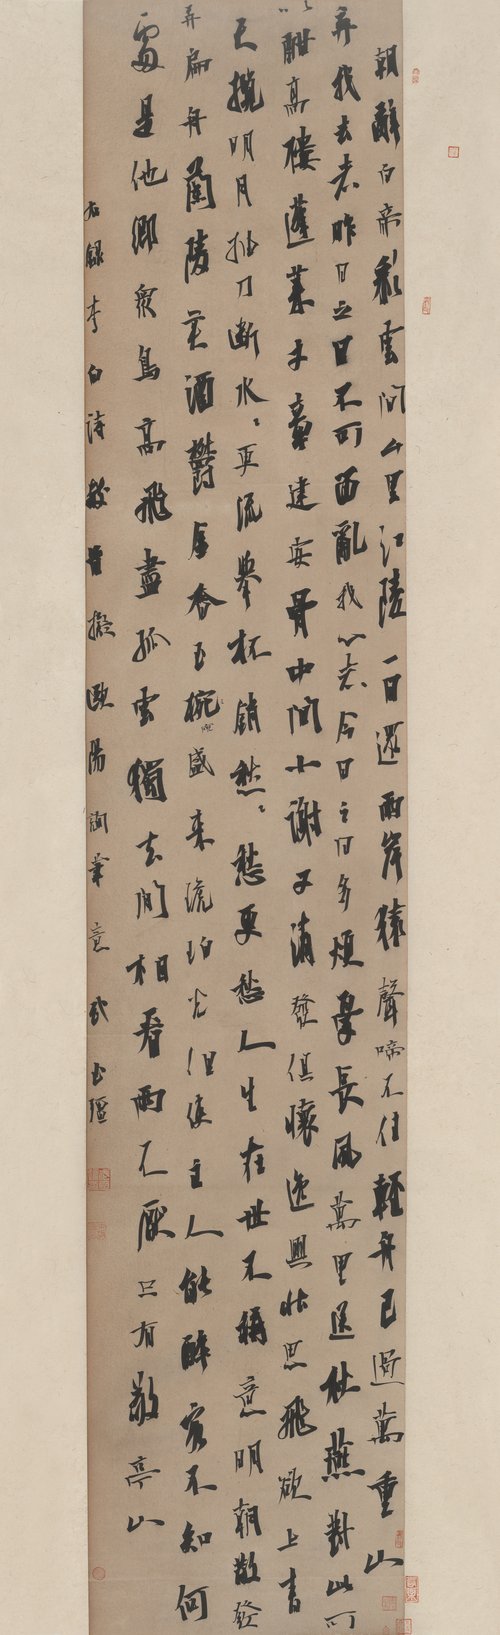 朝辭白帝彩雲間千里江陵一日還兩岸猿聲啼不住輕舟已過萬重山
弃我去者昨日之日不可留亂我心者今日之日多煩憂長風萬里送秋雁對此可
以酣高樓蓬萊文章建安骨中間小謝又清發俱懷逸興壯思飛欲上青
天攬明月抽刀斷水〻更流舉杯銷愁〻愁更愁人生在世不稱意明朝散發
弄扁舟蘭陵美酒鬱金香玉椀盛來琥珀光但使主人能醉客不知何
處是他鄉衆鳥高飛盡孤雲獨去閒相看兩不厭只有敬亭山
右錄李白詩數首擬歐陽詢筆意